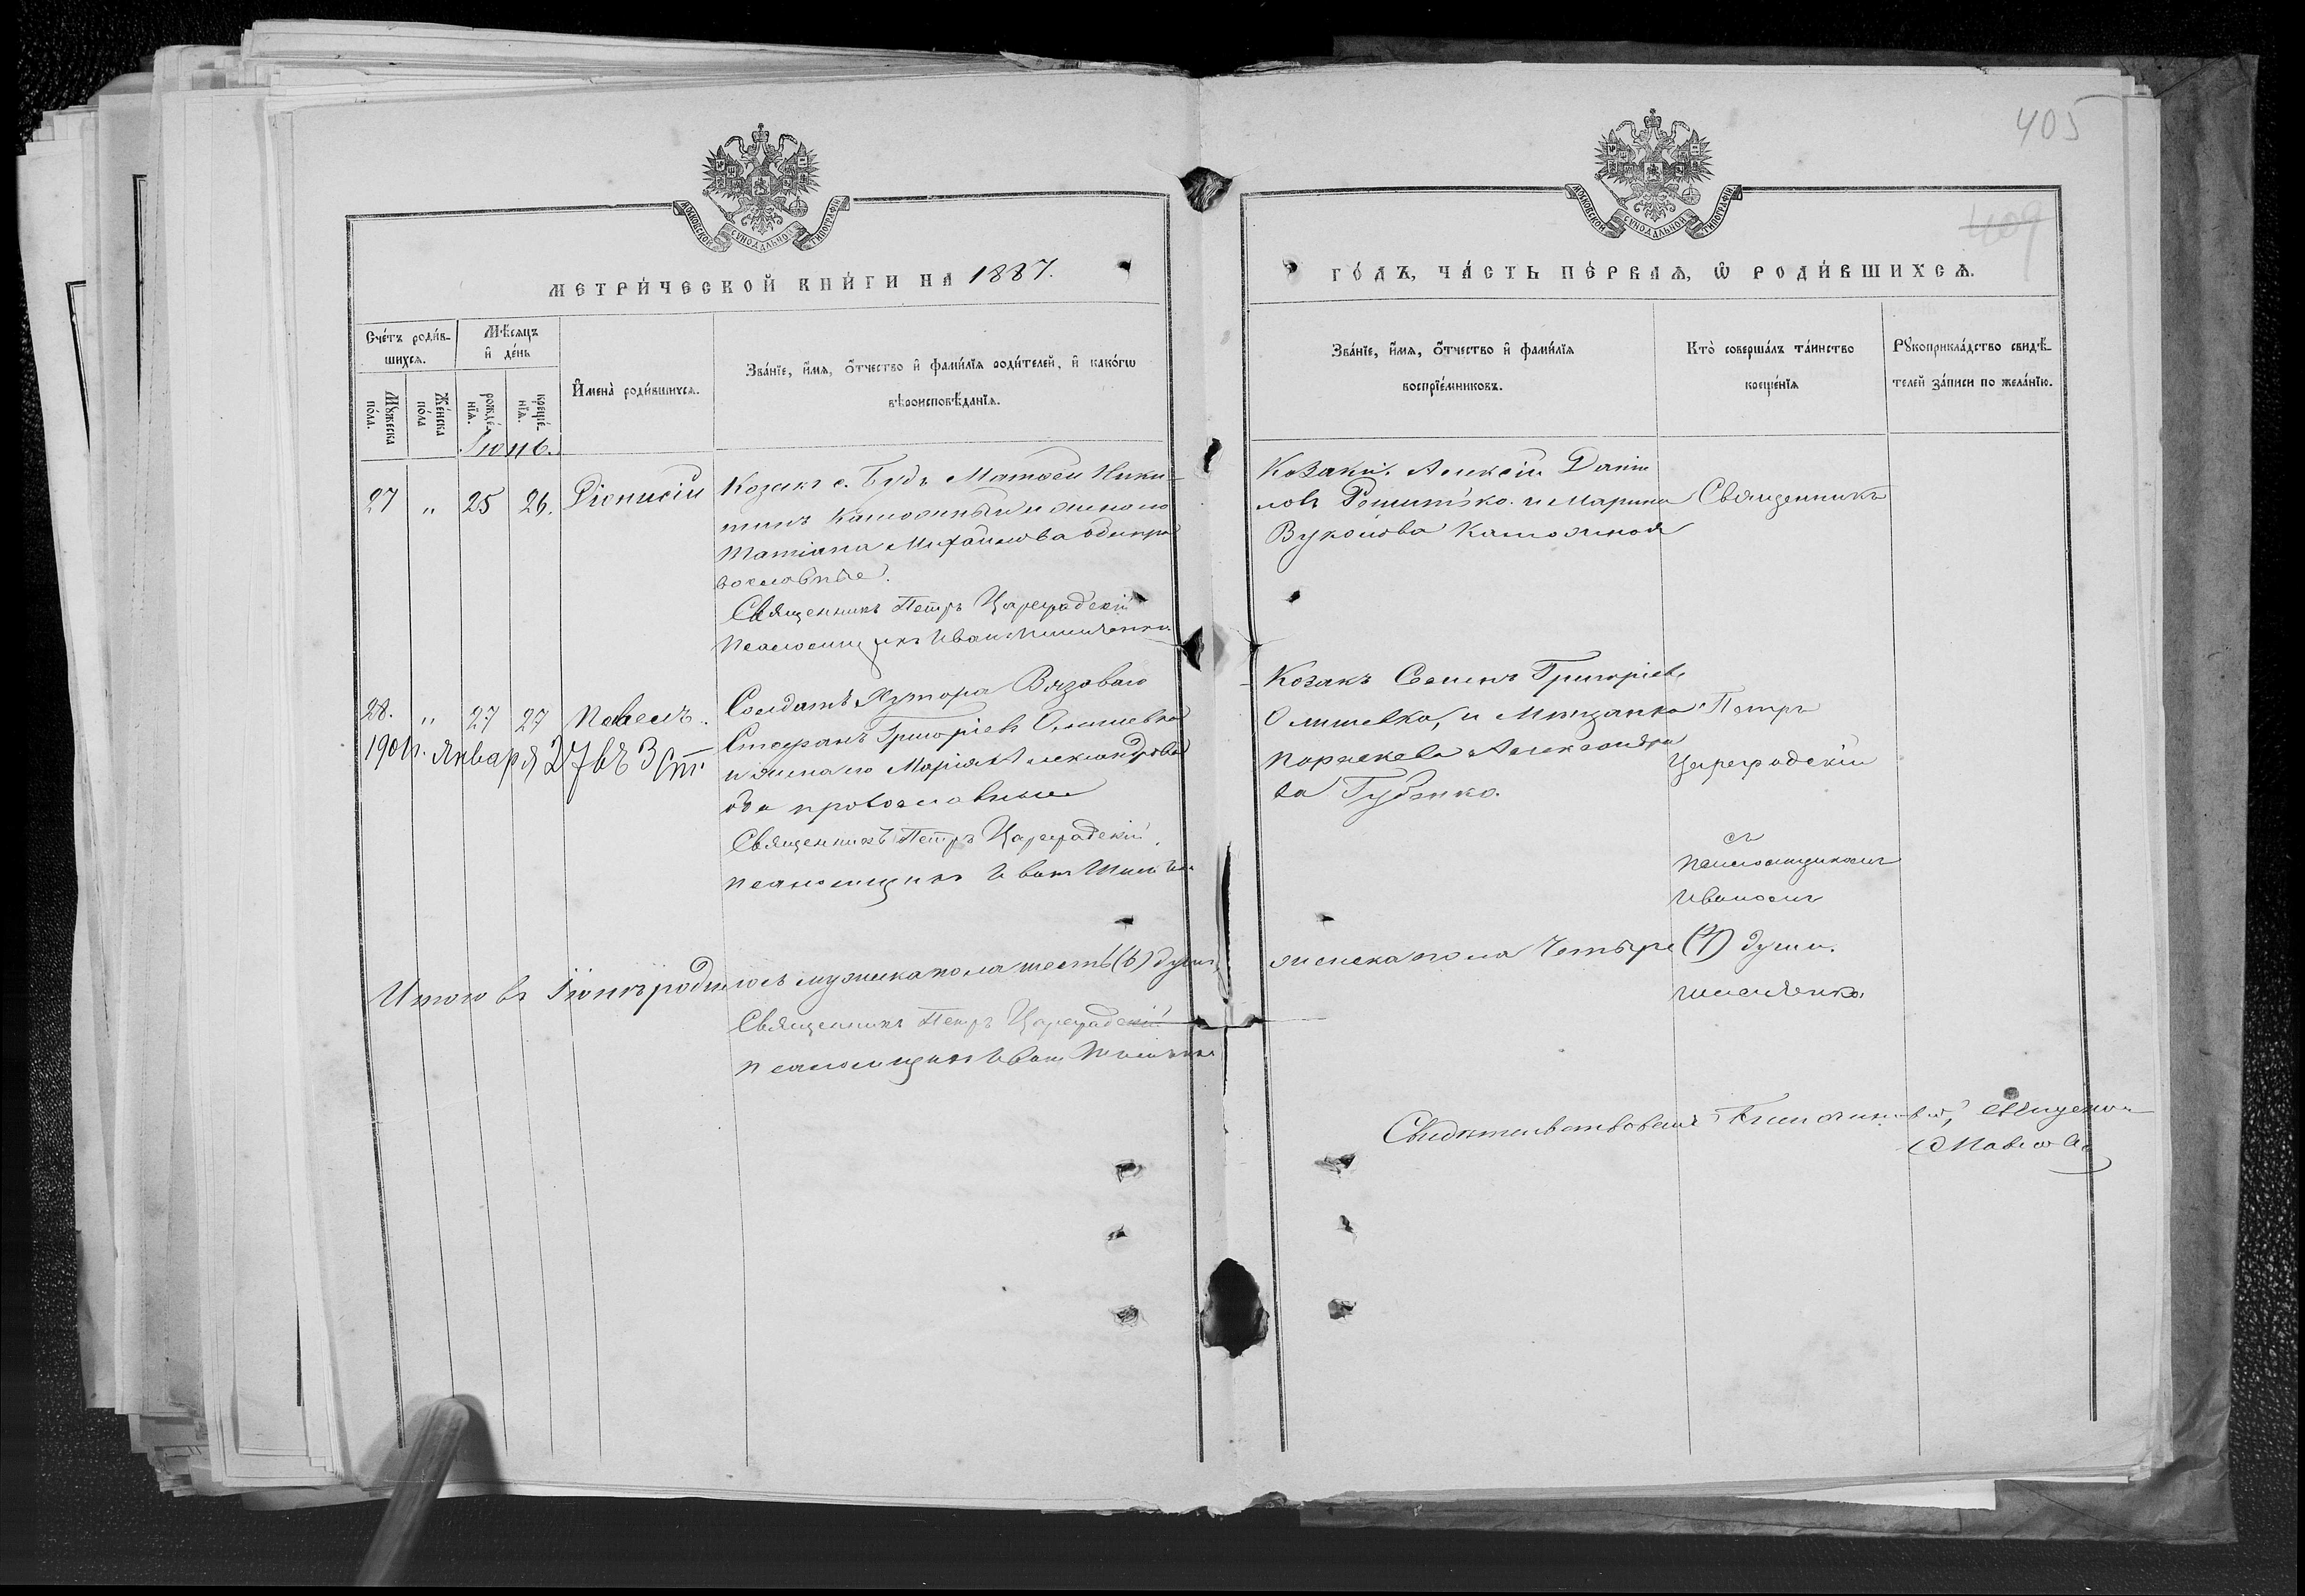 405
409
МОСКОВСКОЙ СѴНОДАЛЬНОЙ ТИПОГРАФІИ
МОСКОВСКОЙ СѴНОДАЛЬНОЙ ТИПОГРАФІИ
МЕТРИ́ЧЕСКОЙ КНИ́ГИ НА 1887.
ГО́ДЪ, ЧА́СТЬ ПЕ́РВАѦ, Ѿ РОДИ́ВШИХСѦ.
Сче́тъ роди́в-
шихсѧ.
Мꙋ́жеска по́ла.
Же́нска по́ла
Мѣ́сѧцъ
и҆ де́нь
рожде́-
нїѧ.
креще́-
нїѧ.
И҆мена̀ роди́вшихсѧ.
Зва́нїе, и҆́мѧ, о҆́тчество и҆ фами́лїѧ роди́телей, и҆ како́гѡ
вѣроисповѣ́данїѧ.
Зва́нїе, и҆́мѧ, о҆́тчество и҆ фами́лїѧ
воспрїе́мниковъ.
Кто̀ соверша́лъ та́инство
креще́нїѧ
Рꙋкоприкла́дство свидѣ́-
телей за́писи по жела́нїю.
Іюнь.
27 „ 25 26. Діонисій
Козакъ с. Будъ Матѳей Ники-
тинъ и жена его
Татіана Михайлова оба пра
вославные.
Священникъ Петръ Цареградскій
Псаломщикъ Иванъ
Козаки: Алексій Дани
ловъ и Марина
Вуколова
Священникъ
28. „ 27 27 Павелъ.
1901г. Января 27 въ 3 ст
Солдатъ Хутора Вязоваго
Стефанъ Григоріевъ Олишевко
и жена его Марія Александрова
оба православные
Священникъ Петръ Цареградскій.
Псаломщикъ Иванъ
Козакъ Семенъ Григоріевъ
Олишевко, и Мѣщанка
Параскева Александро
ва Губенко.
Петръ
Цареградскій
съ
Псаломщикомъ
Иваномъ
Итого въ Іюнѣ родилось мужска пола шесть (6) душъ
женска пола четыре (4) души.
Священникъ Петръ Цареградскій
Псаломщикъ Иванъ
Свидѣтельствовалъ